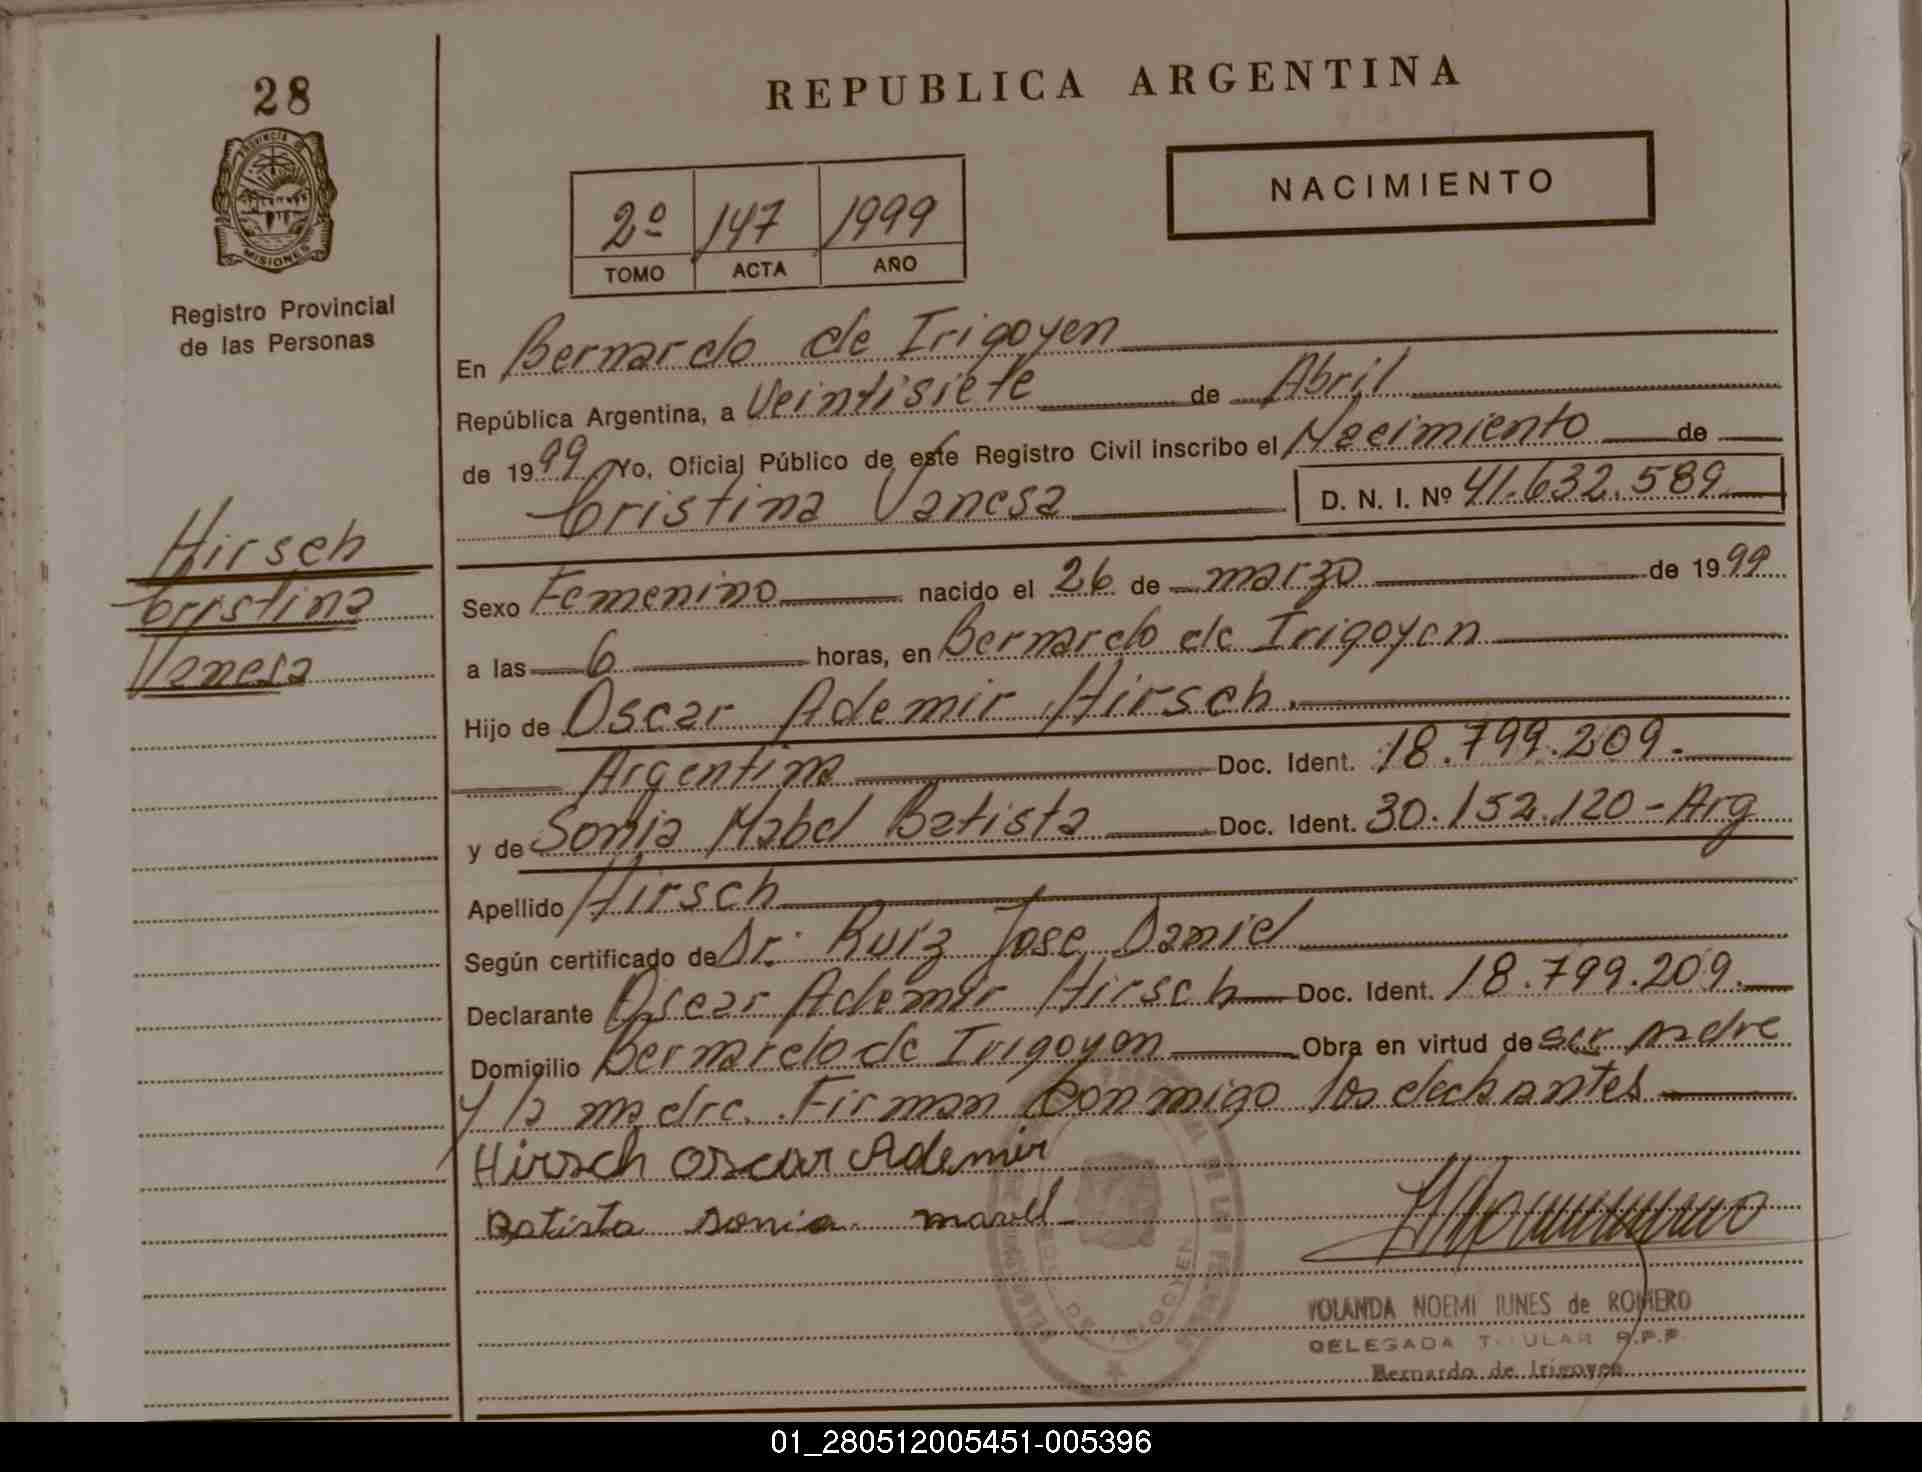 28
PROVINCIA DE
MISIONES
Registro Provincial
de las Personas
Hirsch
Cristina
Vanesa
REPUBLICA ARGENTINA
NACIMIENTO
2º 147 1999
TOMO ACTA AÑO
En Bernardo de Irigoyen
República Argentina, a Veintisiete de Abril
de 1999 Yo, Oficial Público de este Registro Civil inscribo el Nacimiento de
Cristina Vanesa D. N. I. Nº 41.632.589
Sexo Femenino nacido el 26 de marzo de 1999
a las 6 horas, en Bernardo de Irigoyen
Hijo de Oscar Ademir Hirsch.
Argentina Doc. Ident. 18.799.209.
y de Sonia Mabel Batista Doc. Ident. 30.152.120 - Arg
Apellido Hirsch
Según certificado de Dr. Ruiz Jose Daniel
Declarante Oscar Ademir Hirsch Doc. Ident. 18.799.209.
Domicilio Bernardo de Irigoyen Obra en virtud de ser padre
y la madre. Firman conmigo los declarantes
Hirsch Oscar Ademir
Batista sonia mavel
YOLANDA NOEMI IUNES de ROMERO
DELEGADA TITULAR R.P.P.
Bernardo de Irigoyen
01_280512005451-005396